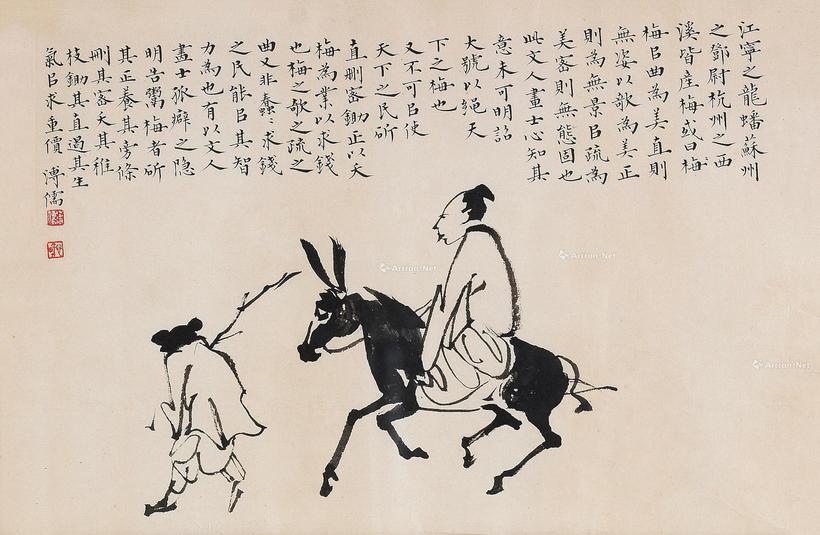 江寧之龍蟠蘇州
之鄧尉杭州之西
溪皆産梅或曰梅
梅㠯曲為美直則
無姿以欹為美正
則為無景㠯疏為
美密則無態固也
此文人畫士心知其
意未可明詔
大號以繩天
下之梅也
又不可㠯使
天下之民斫
直刪密鋤正以夭
梅為業以求錢
也梅之欹之疏之
曲又非蠢〻求錢
之民能㠯其智
力為也有以文人
畫士孤癖之隱
明告鬻梅者斫
其正養其旁條
刪其密夭其稚
枝鋤其直遏其生
氣㠯求重價 溥儒
Artron.Net
Artron.Net
Artron.Net